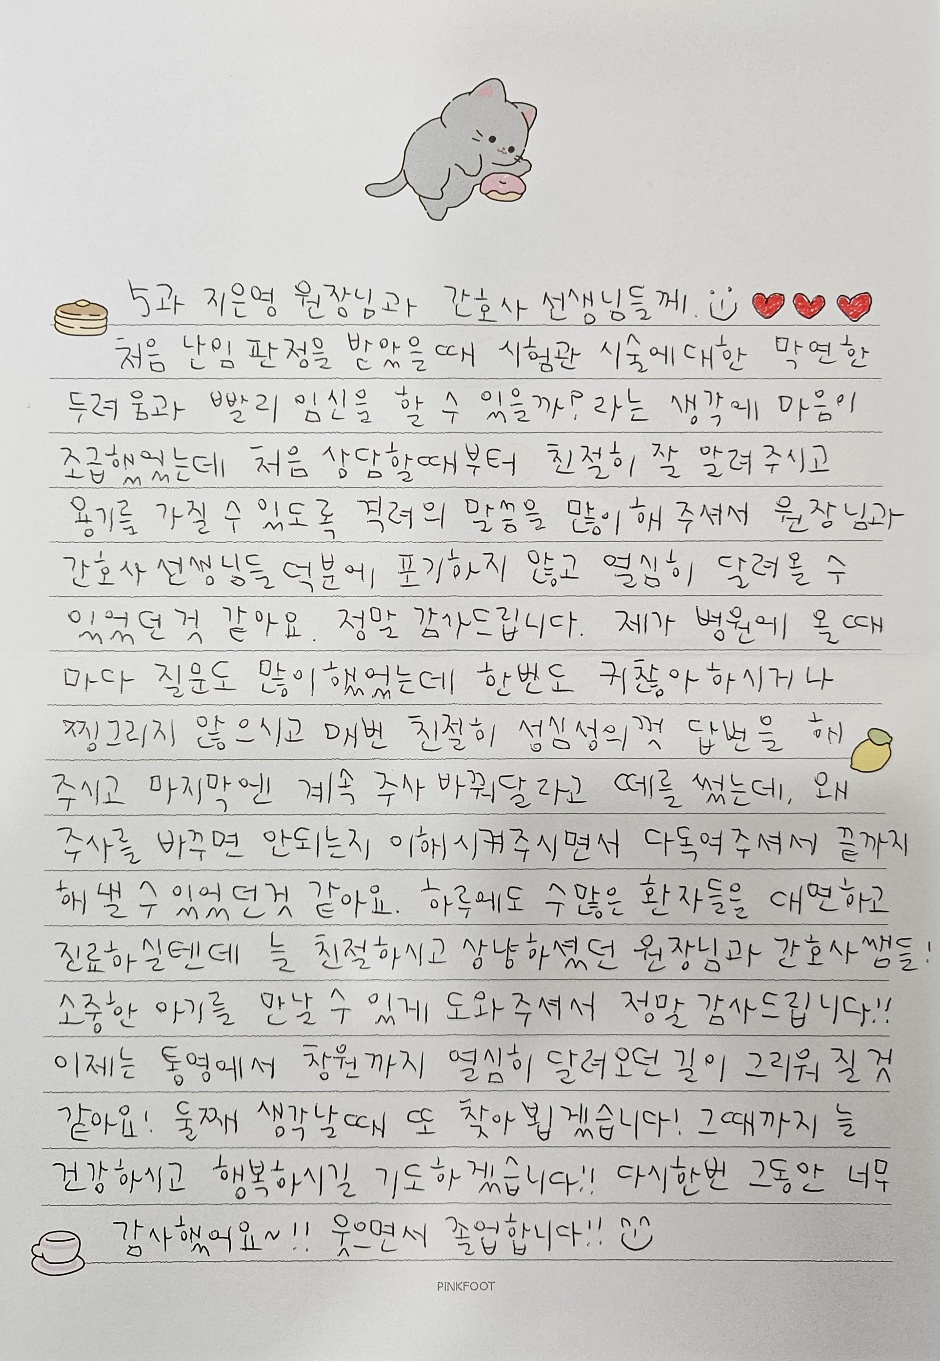 5과 지은영 원장님과 간호사 선생님들께.
처음 난임 판정을 받았을때 시험관 시술에대한 막연한
두려움과 빨리 임신을 할 수 있을까? 라는 생각에 마음이
조급했었는데 처음 상담할때부터 친절히 잘 알려주시고
용기를 가질 수 있도록 격려의 말씀을 많이 해주셔서 원장님과
간호사선생님들 덕분에 포기하지 않고 열심히 달려올 수
있었던 것 같아요. 정말 감사드립니다. 제가 병원에 올때
마다 질문도 많이했었는데 한번도 귀찮아하시거나
찡그리지 않으시고 매번 친절히 성심성의껏 답변을 해
주시고 마지막엔 계속 주사 바꿔달라고 떼를 썼는데, 왜
주사를 바꾸면 안되는지 이해시켜주시면서 다독여주셔서 끝까지
해낼 수 있었던것 같아요. 하루에도 수많은 환자들을 대면하고
진료하실텐데 늘 친절하시고 상냥하셨던 원장님과 간호사쌤들!
소중한 아기를 만날 수 있게 도와주셔서 정말 감사드립니다!!
이제는 통영에서 창원까지 열심히 달려오던 길이 그리워 질 것
같아요! 둘째 생각날때 또 찾아뵙겠습니다! 그때까지 늘
건강하시고 행복하시길 기도하겠습니다!! 다시한번 그동안 너무
감사했어요~!! 웃으면서 졸업합니다!!
PINKFOOT